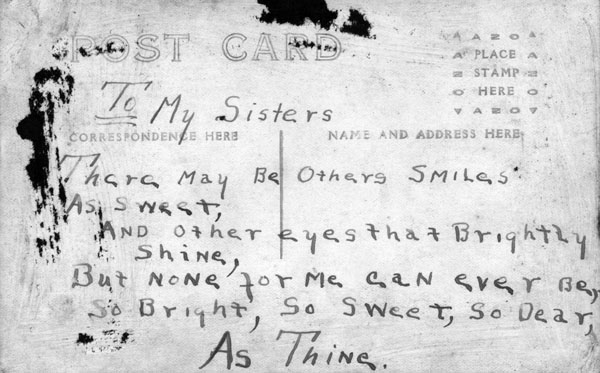 POST CARD
AZOA
A PLACE A
Z STAMP Z
O HERE O
VAZOV
To My Sisters
CORRESPONDENCE HERE
NAME AND ADDRESS HERE
There May Be Others Smiles
As Sweet,
And other eyes that Brightly
Shine,
But None for Me can ever Be,
So Bright, So Sweet, So Dear,
As Thine.